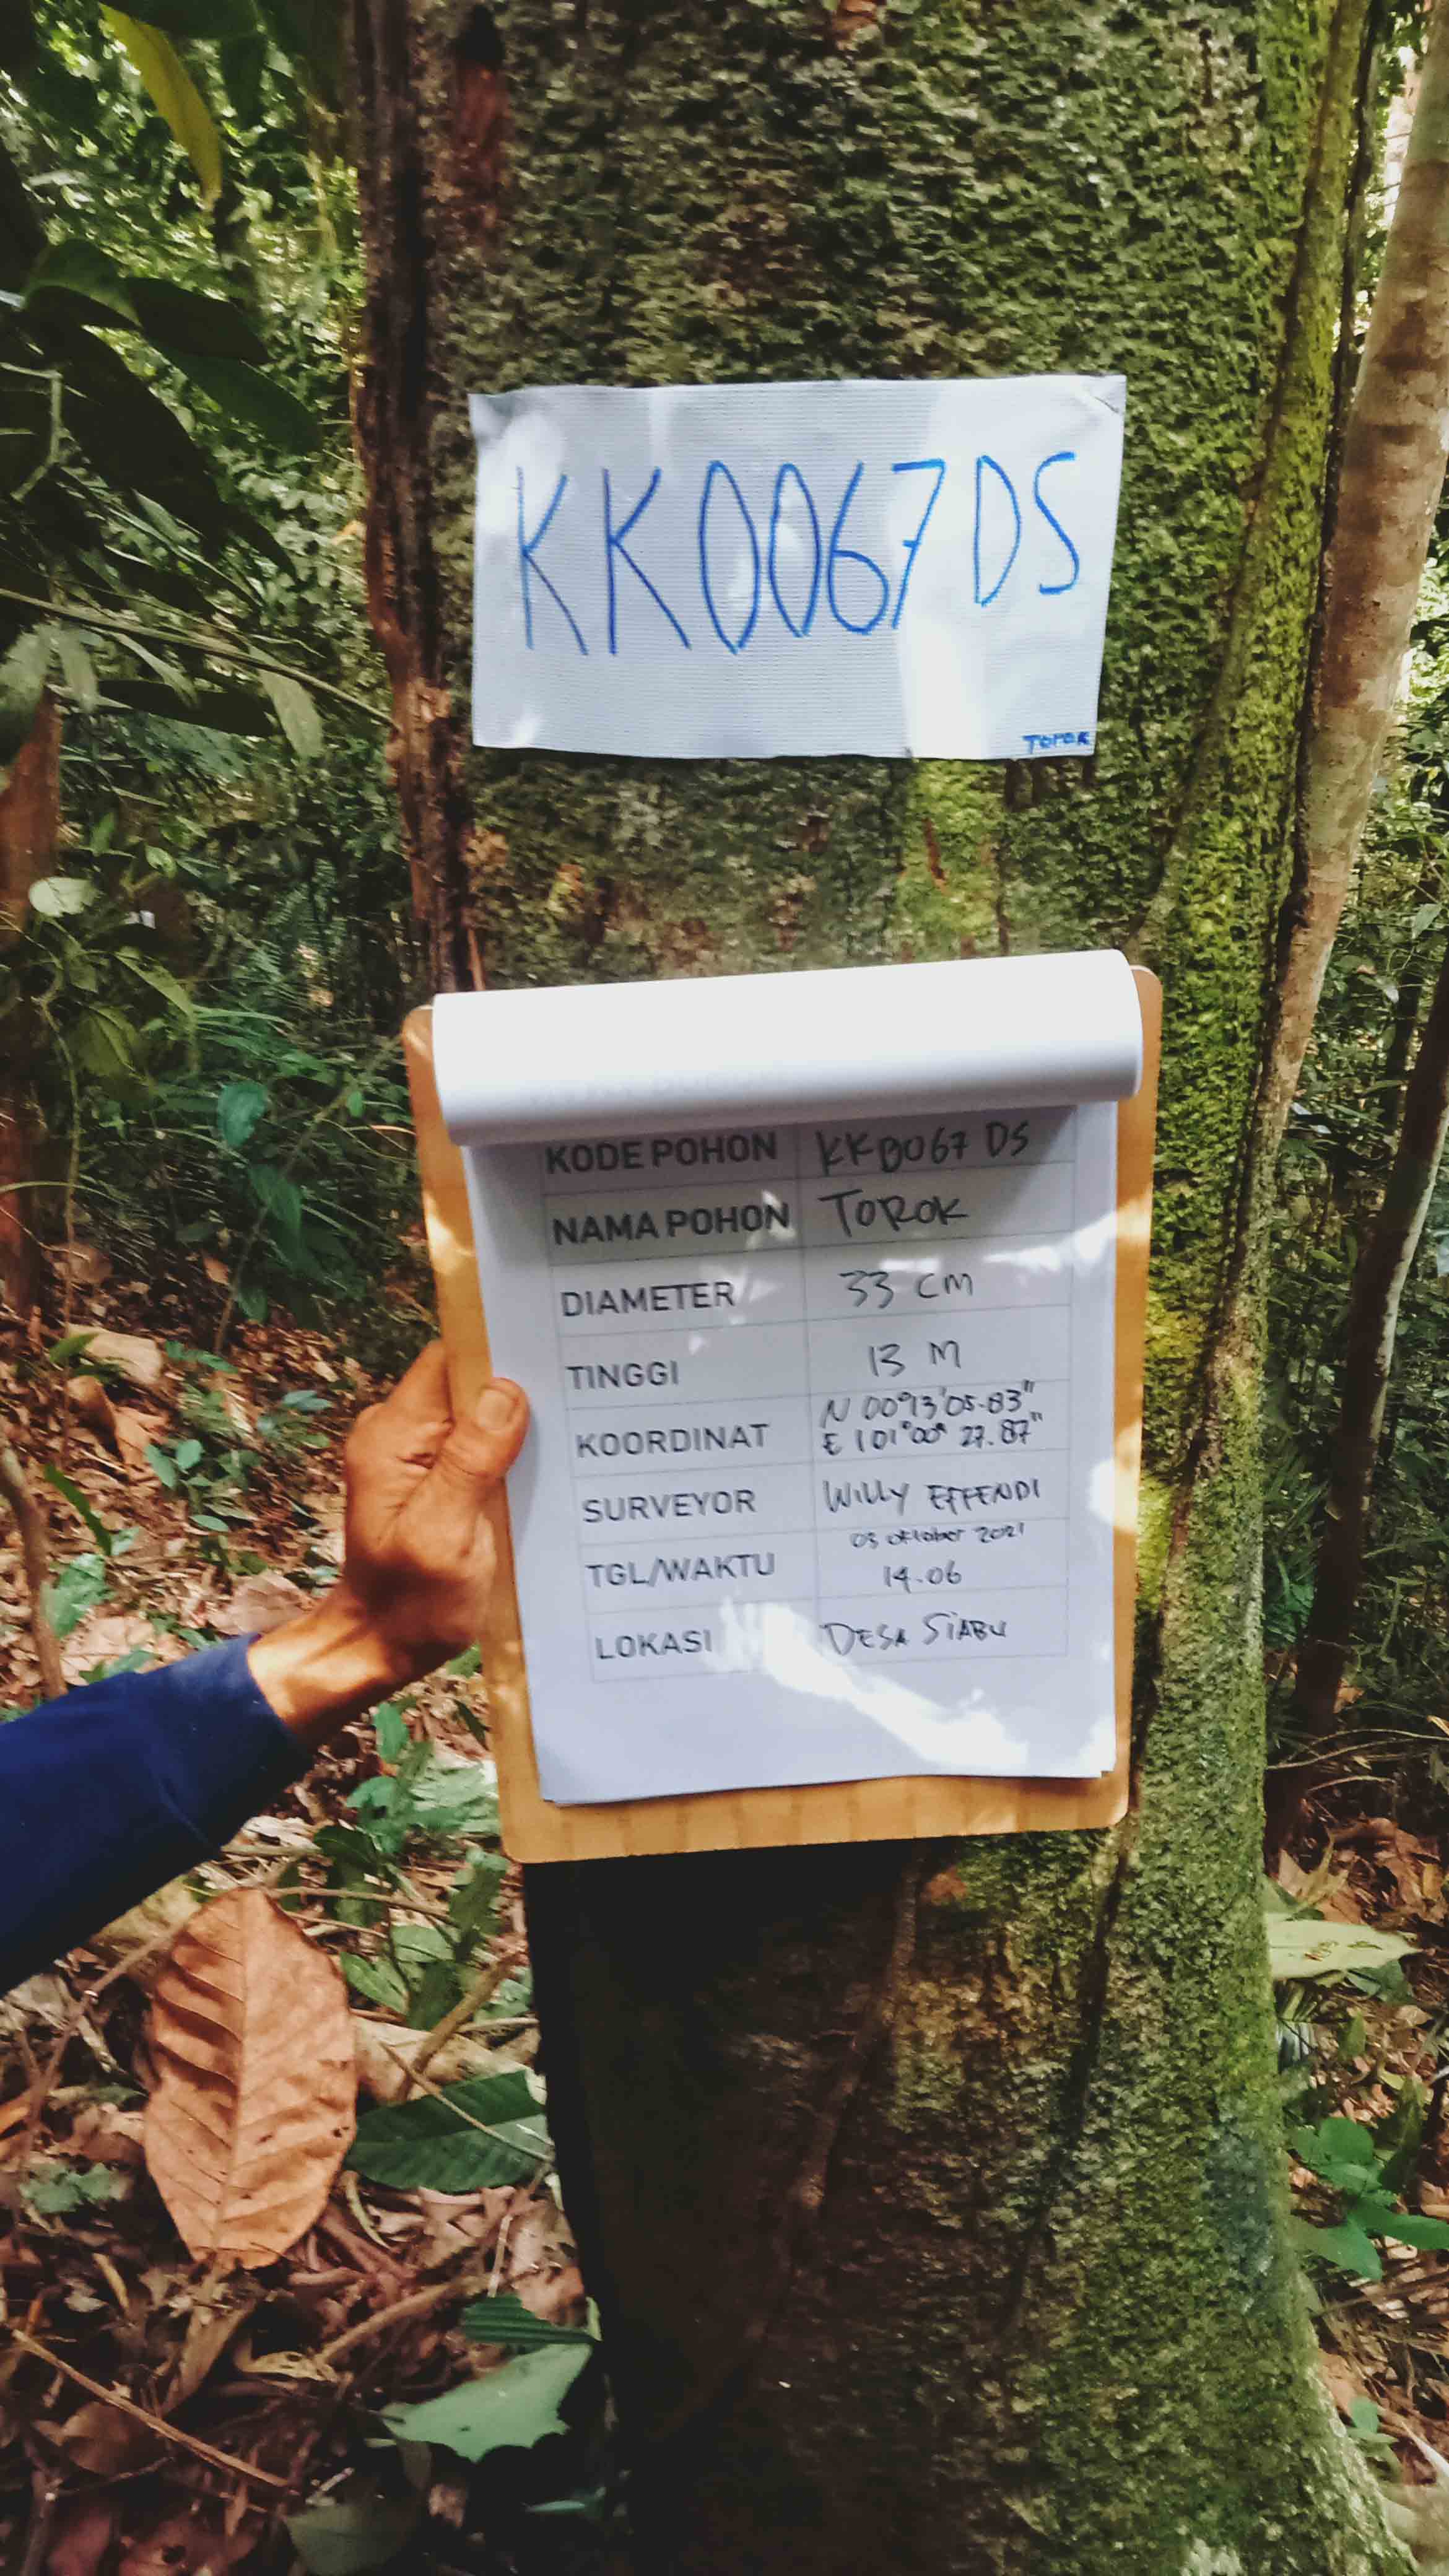 KK0067 DS
TOROK
KODE POHON KK0067 DS
NAMA POHON TOROK
DIAMETER 33 CM
TINGGI 13 M
KOORDINAT N 00°13'05.83"
E 101°00' 27.87"
SURVEYOR WILLY EFFENDI
TGL/WAKTU 03 oktober 2021
14.06
LOKASI DESA SIABU